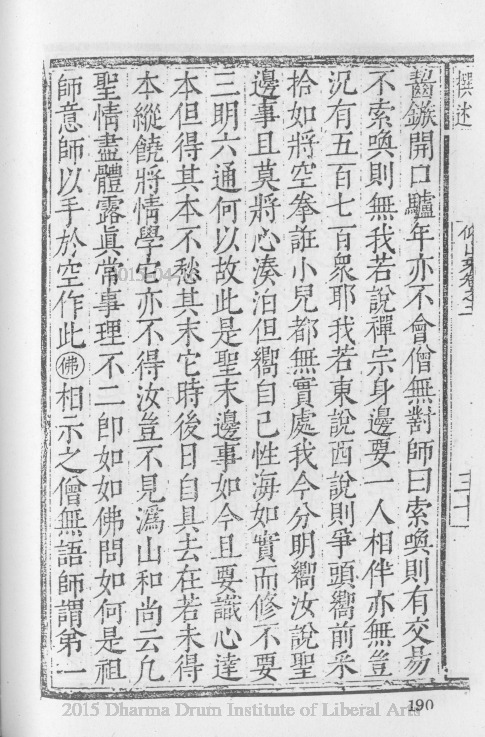 撰述
齧鏃開口驢年亦不會僧無對師曰索喚則有交易
不索喚則無我若說禪宗身邊要一人相伴亦無豈
況有五百七百衆耶我若東說西說則爭頭嚮前采
拾如將空拳誑小兒都無實處我今分明嚮汝說聖
邊事且莫將心湊泊但嚮自己性海如實而修不要
三明六通何以故此是聖末邊事如今且要識心達
本但得其本不愁其末它時後日自具去在若未得
本縱饒將情學它亦不得汝豈不見潙山和尚云凡
聖情盡體露眞常事理不二卽如如佛問如何是祖
師意師以手於空作此佛相示之僧無語師謂第一
190
2015 Dharma Drum Institute of Liberal Arts